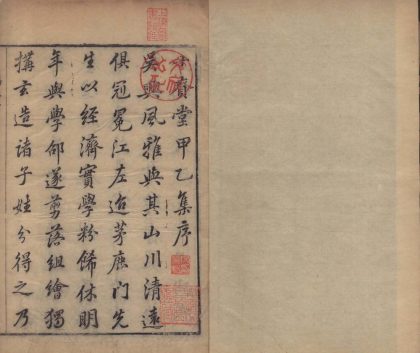 賁堂甲乙集序
吳興風雅與其山川清遠
俱冠冕江左迨茅鹿門先
生以經濟實學粉餙休明
年與學邵遂剪落組繪獨
搆玄造諸子姓分得之乃